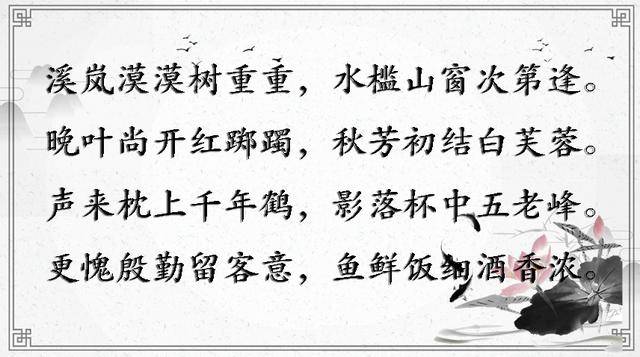 溪岚漠漠树重重，水槛山窗次第逢。
晚叶尚开红踯躅，秋芳初结白芙蓉。
声来枕上千年鹤，影落杯中五老峰。
更愧殷勤留客意，鱼鲜饭细酒香浓。